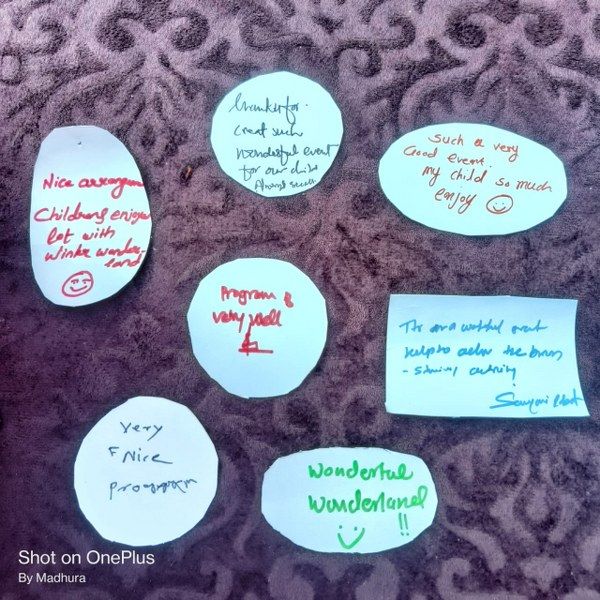 Thanks for
creat such
wonderful event
for our child
Such a very
Good event.
my child so much
enjoy
Nice arrangem
Childrens enjoyed
lot with
Winter wonder-
land
Program is
very well
It is a event
help to the
activity
Very
Nice
Programm
Wonderful
Wonderland
!!
Shot on OnePlus
By Madhura